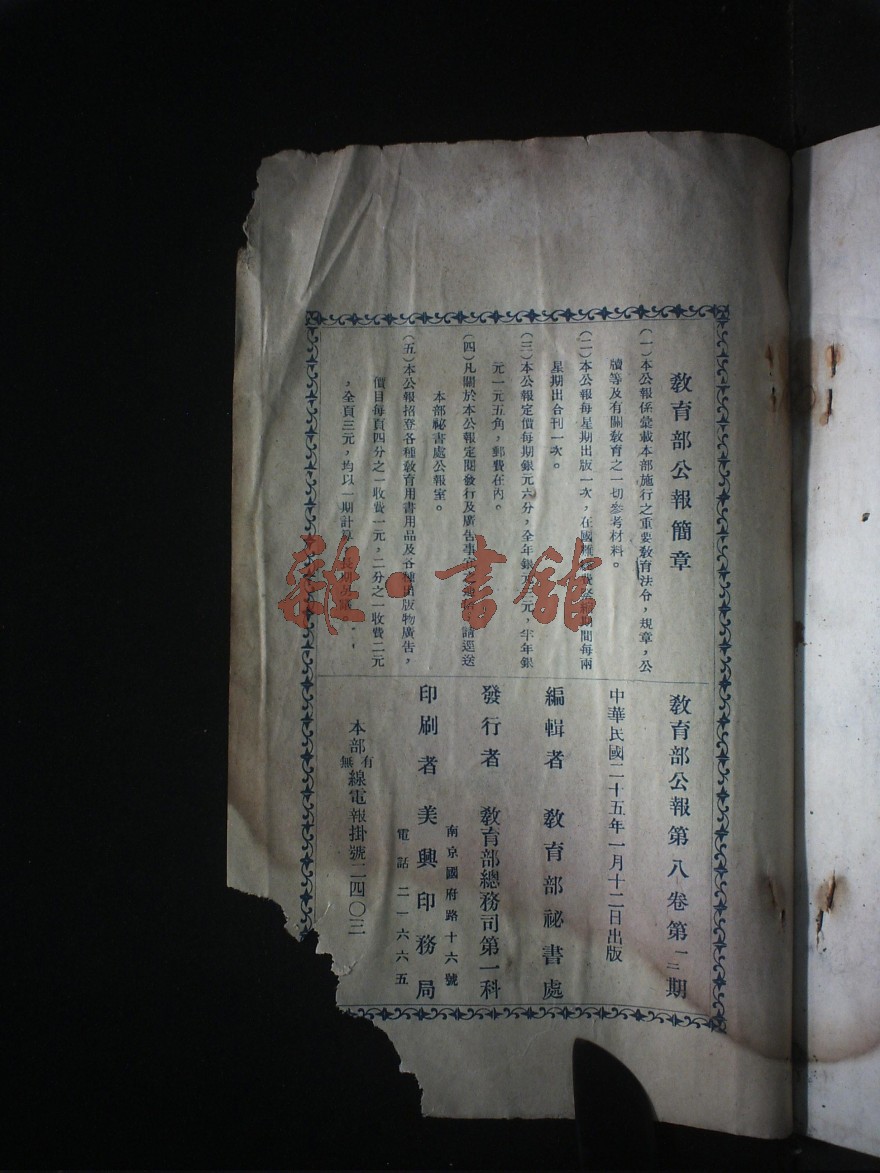 教育部公報簡章
(一)本公報係彙載本部施行之重要教育法令，規章，公
牘等及有關教育之一切參考材料。
(二)本公報每星期出版一次，在國 期間每兩
星期出合刊一次。
(三)本公報定價每期銀元六分，全年銀元三元，半年銀
元一元五角，郵費在內。
(四)凡關於本公報定閱發行及廣告事宜 請逕送
本部祕書處公報室。
(五)本公報招登各種教育用書用品及各種出版物廣告，
價目每頁四分之一收費一元，二分之一收費二元
，全頁三元，均以一期計算，長期
教育部公報第八卷第一二期
中華民國二十五年一月十二日出版
編輯者 教育部祕書處
發行者 教育部總務司第一科
南京國府路十六號
印刷者 美興印務局
電話 二一六六五
本部有無線電報掛號二四〇三
雜·書館